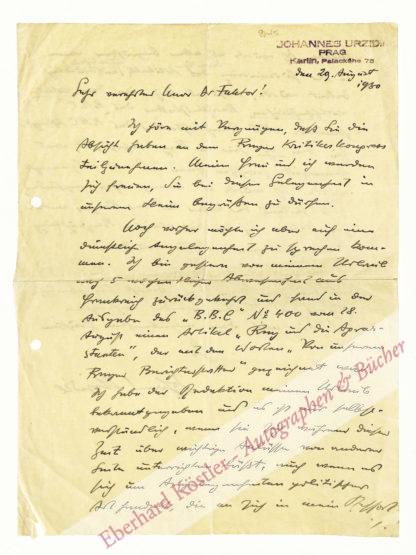 JOHANNES URZIDIL
PRAG
Karlin, Palackého 75
den 29. August
1930
Sehr verehrter Herr Dr Faktor!
Ich höre mit Vergnügen, daß Sie die
Absicht haben an dem Prager Kritikerkongress
teilzunehmen. Meine Frau und ich würden
sich freuen, Sie bei dieser Gelegenheit in
unserem Heim begrüßen zu dürfen.
Noch vorher möchte ich aber auf eine
dienstliche Angelegenheit zu sprechen kom-
men. Ich bin gestern von meinem Urlaub
nach 5 wöchentlicher Abwesenheit aus
Frankreich zurückgekehrt und fand in der
Ausgabe des "B.B.C" No 400 vom 28.
August einen Artikel "Prag und die Agrar-
staaten", der mit den Worten "Von unserem
Prager Berichterstatter" gezeichnet
Ich habe der Redaktion meinen Urlaub
bekanntgegeben und es ist selbst-
verständlich, wenn sie während dieser
Zeit über wichtige von anderer
Seite unterrichten läßt, auch wenn es
sich um Angelegenheiten politischer
Art handelt, die an sich in mein Ressort
./.
Eberhard Köstler - Autographen & Bücher